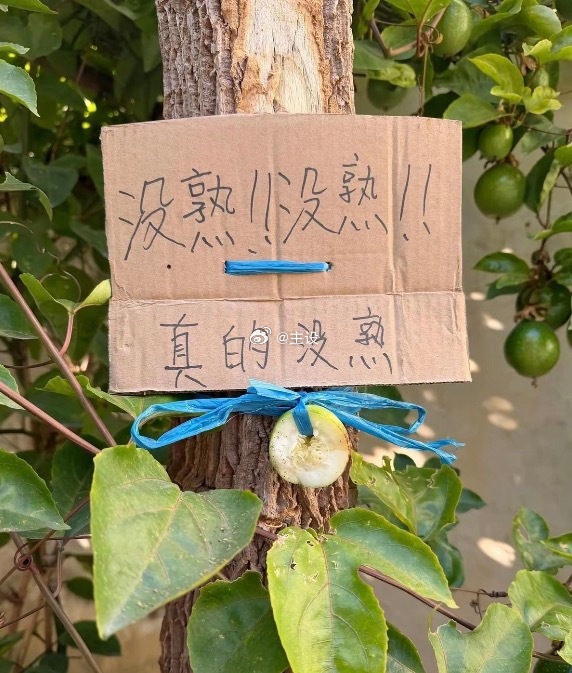 没熟!!没熟!!
真的没熟
@主设